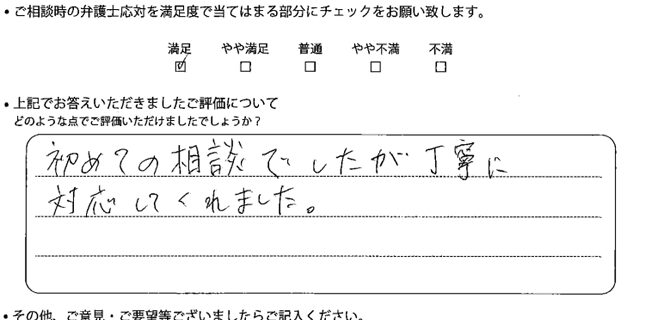 ・ご相談時の弁護士応対を満足度で当てはまる部分にチェックをお願い致します。
満足 やや満足 普通 やや不満 不満
☑ □ □ □ □
・上記でお答えいただきましたご評価について
どのような点でご評価いただけましたでしょうか？
初めての相談でしたが丁寧に
対応してくれました。
・その他、ご意見・ご要望等ございましたらご記入ください。